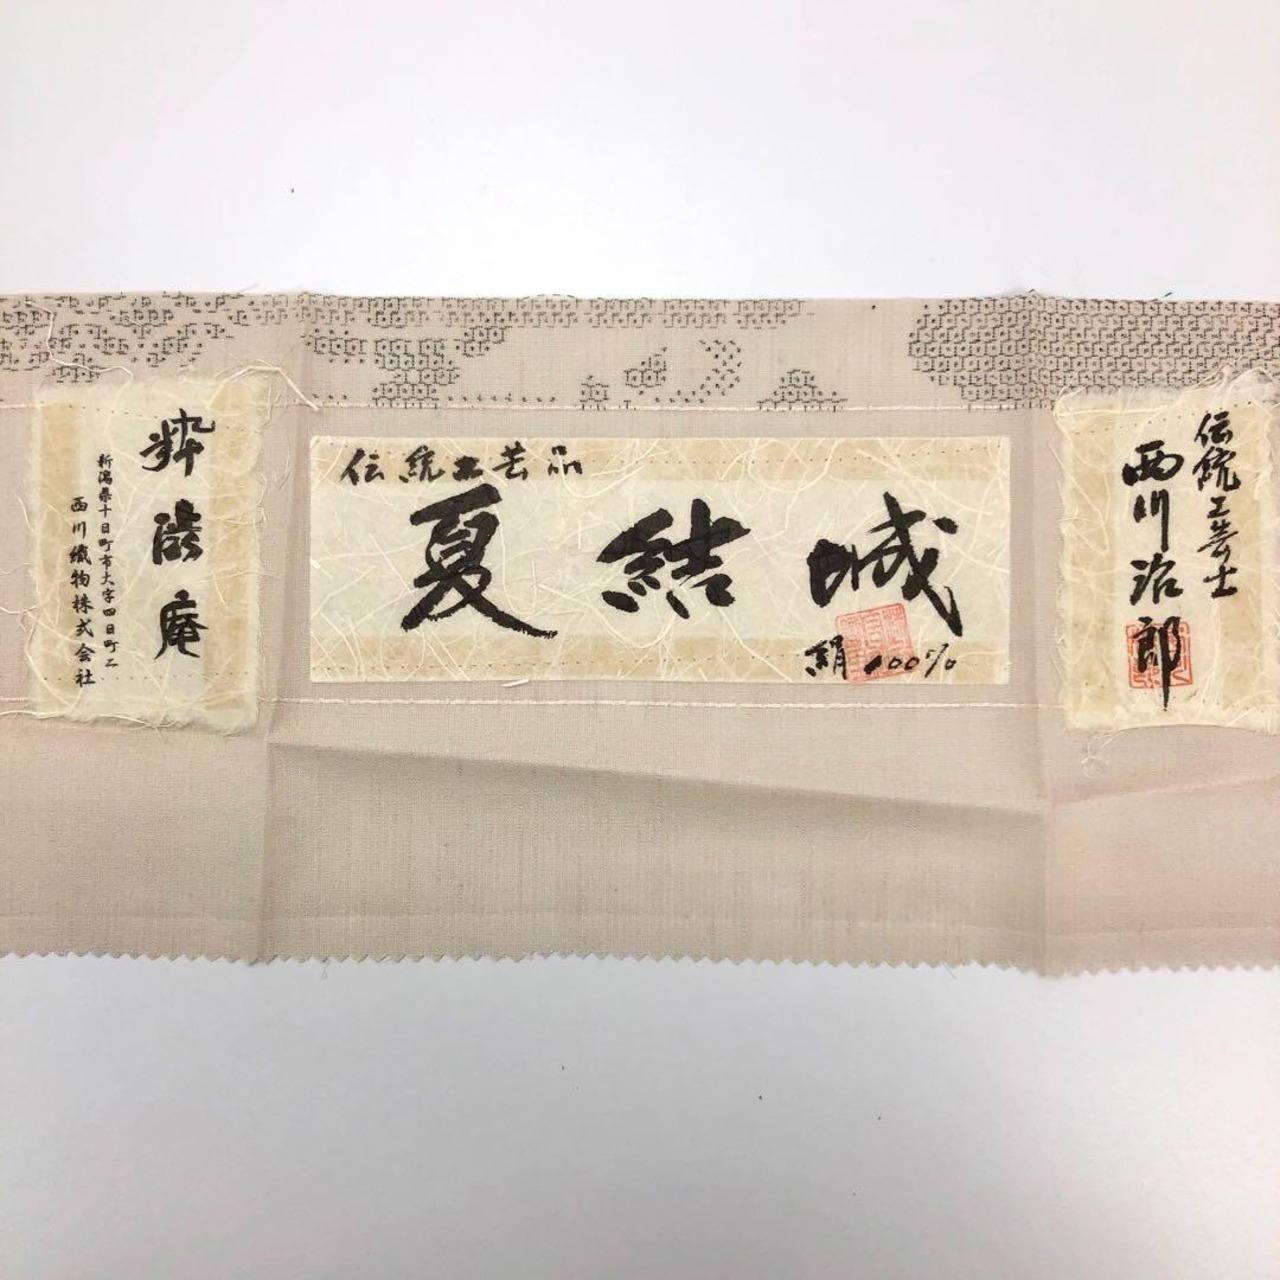 伝統工芸品
夏結城
絹100%
伝統工芸士
西川治郎
新潟県十日町市大字四日町二
西川織物株式会社